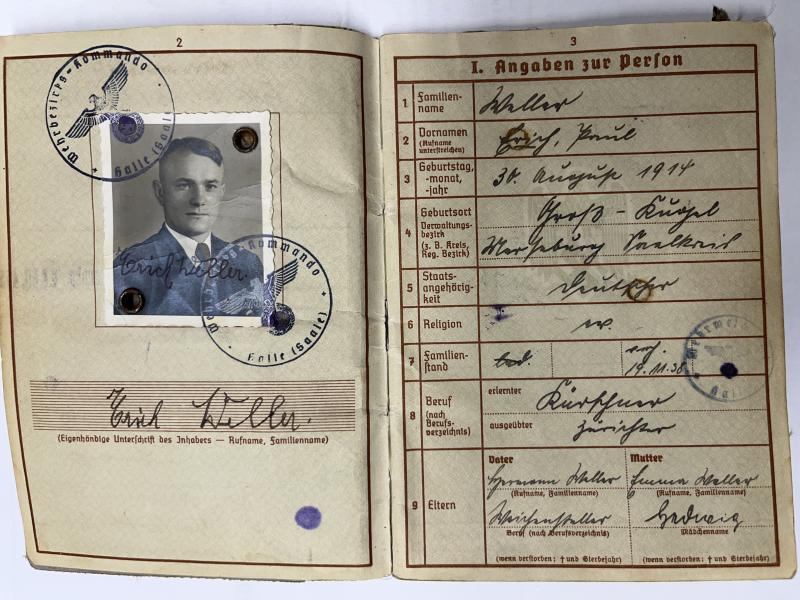 2
Wehrbezirks-Kommando
Halle (Saale)
Erich Weller.
Wehrbezirks-Kommando
Halle (Saale)
Erich Weller.
(Eigenhändige Unterschrift des Inhabers — Rufname, Familienname)
3
I. Angaben zur Person
1 Familien-
name
Weller
2 Vornamen
(Rufname
unterstreichen)
Erich, Paul
3 Geburtstag,
-monat,
-jahr
30. August 1914
4 Geburtsort
Verwaltungs-
bezirk
(z. B. Kreis,
Reg. Bezirk)
Groß-Kugel
Merseburg Saalkreis
5 Staats-
angehörig-
keit
Deutscher
6 Religion
ev.
7 Familien-
stand
led.
verh.
19.11.38
8 Beruf
(nach
Berufs-
verzeichnis)
erlernter
Kürschner
ausgeübter
Zurichter
9 Eltern
Vater
Mutter
Hermann Weller
Emma Weller
(Rufname, Familienname)
(Rufname, Familienname)
Weichensteller
Hedwig
Beruf (nach Berufsverzeichnis)
Mädchenname
(wenn verstorben: † und Sterbejahr)
(wenn verstorben: † und Sterbejahr)